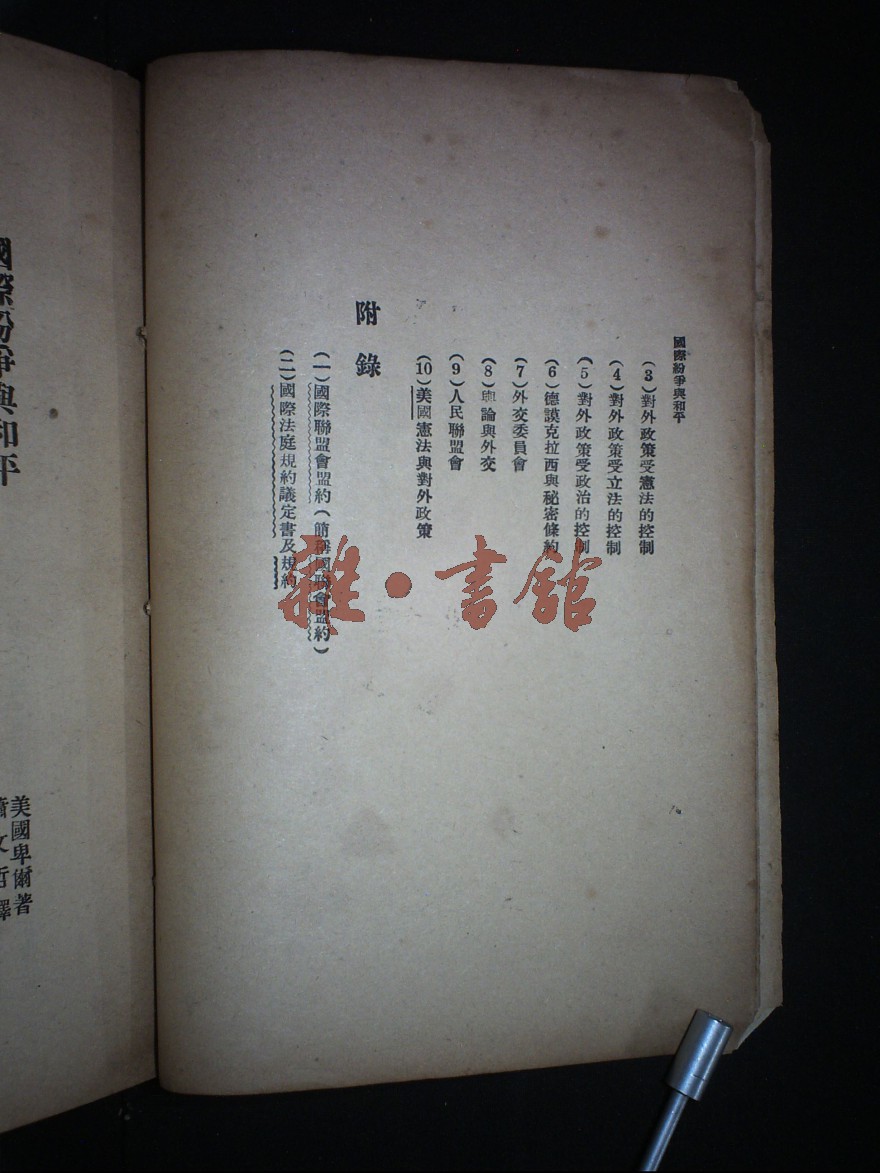 國際紛爭與和平
(3)對外政策受憲法的控制
(4)對外政策受立法的控制
(5)對外政策受政治的控制
(6)德謨克拉西與秘密條約
(7)外交委員會
(8)輿論與外交
(9)人民聯盟會
(10)美國憲法與對外政策
附錄
(一)國際聯盟會盟約(簡稱國聯會盟約)
(二)國際法庭規約議定書及規約
雜·書館
國際紛爭與和平
美國卑爾著
蕭文哲譯